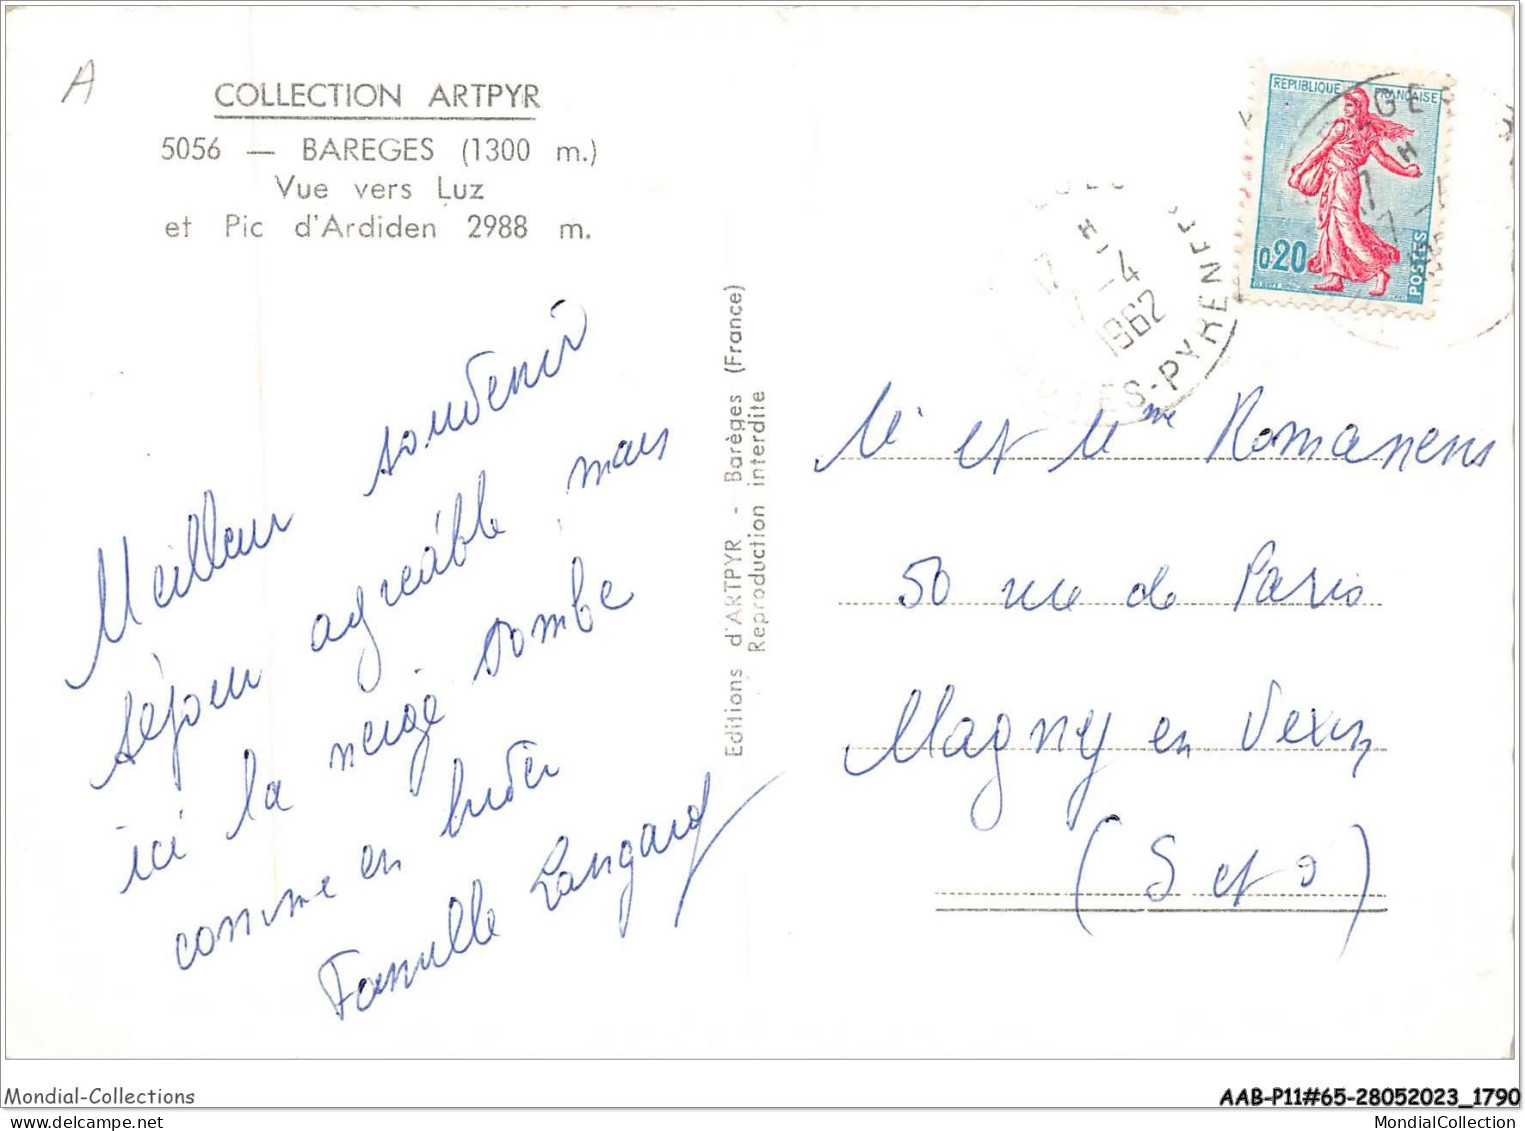 A
COLLECTION ARTPYR
5056 — BAREGES (1300 m.)
Vue vers Luz
et Pic d'Ardiden 2988 m.
Meilleur souvenir
séjour agréable, mais
ici la neige tombe
comme en hiver
Famille Langard
Editions d'ARTPYR - Barèges (France)
Reproduction interdite
REPUBLIQUE FRANÇAISE
0.20
POSTES
GES
17 H
7 -4
1962
ES-PYRENEES
Mr et Mme Romanens
50 rue de Paris
Magny en Vexin
(S et O)
Mondial-Collections
AAB-P11#65-28052023_1790
MondialCollection.com